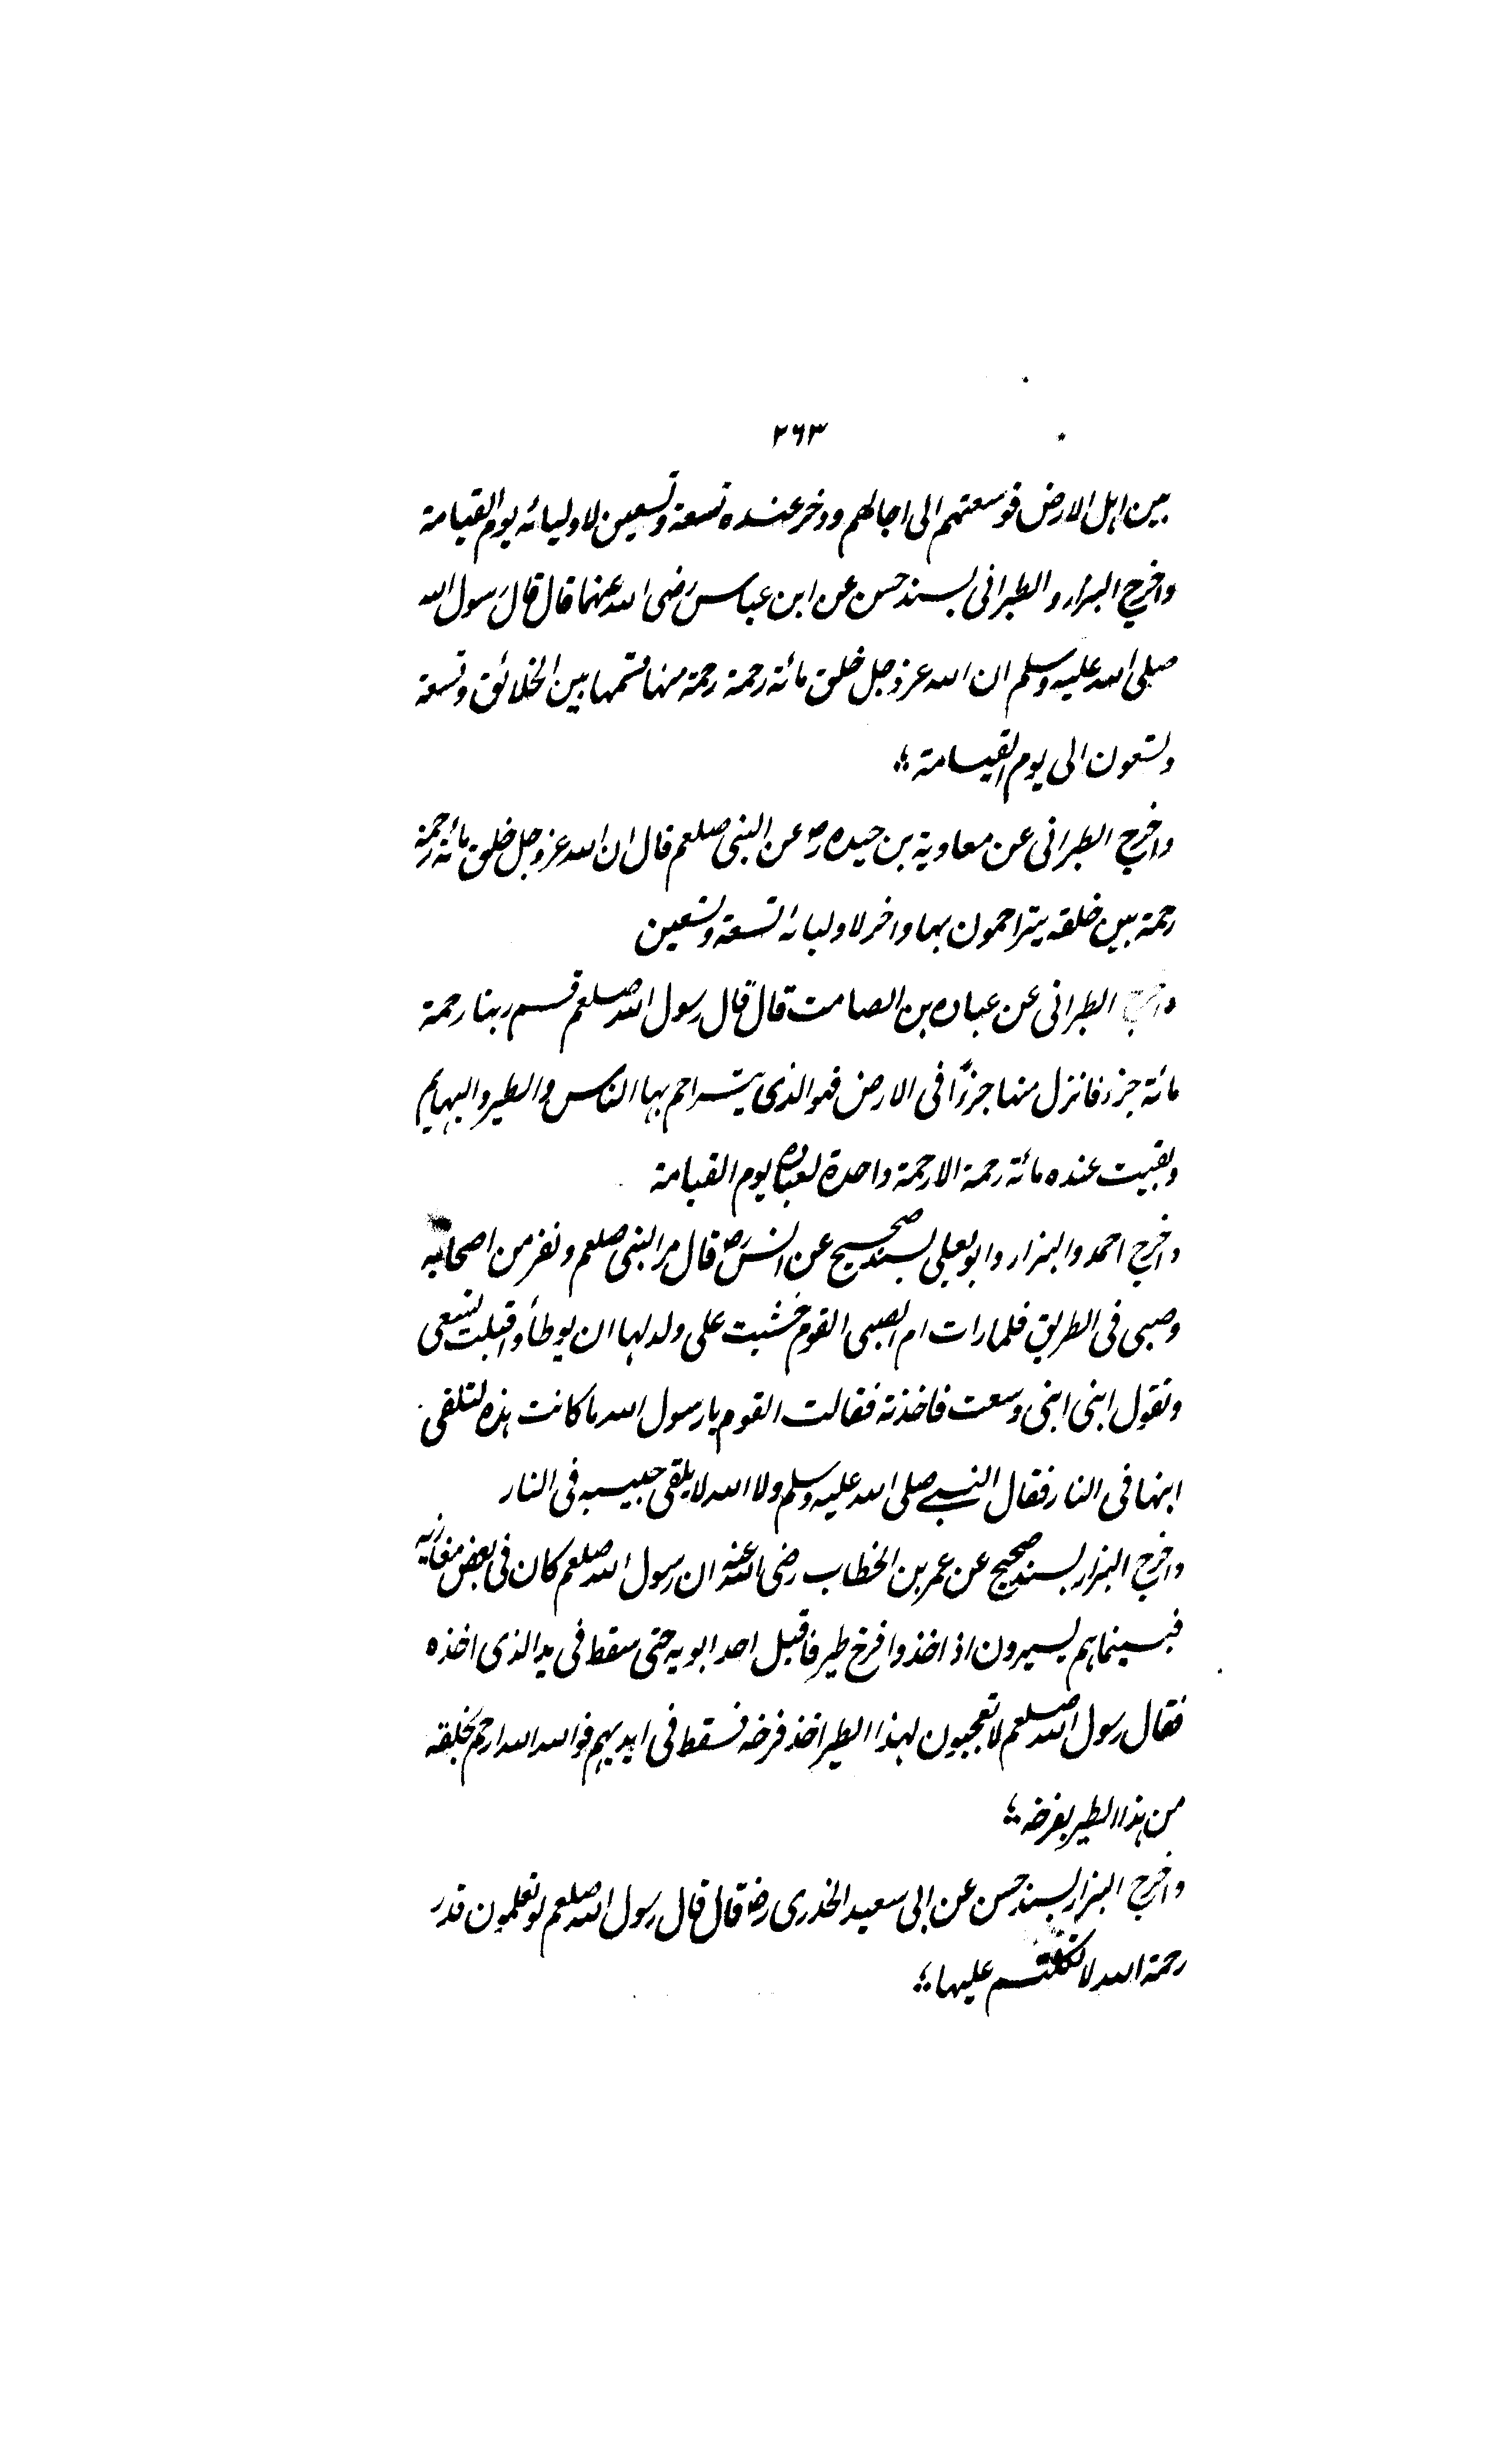 ٢٦٣
بين اهل الارض فوسعتهم الى اجالهم ودخر عنده تسعة وتسعين لاوليائه يوم القيامة
واخرج البزار والطبرانى بسند حسن عن ابن عباس رضى الله عنهما قال قال رسول الله
صلى الله عليه وسلم ان الله عز وجل خلق مائة رحمة رحمة منها قسمها بين الخلائق وتسعة
وتسعون الى يوم القيامة ؛
واخرج الطبرانى عن معاوية بن حيده رض عن النبى صلعم قال ان الله عز وجل خلق مائة رحمة
رحمة بين خلقه يتراحمون بها واخر لاوليائه تسعة وتسعين
واخرج الطبرانى عن عباده بن الصامت قال قال رسول الله صلعم قسم ربنا رحمة
مائة جزء فانزل منها جزءًا فى الارض فهو الذى يتراحم بها الناس والطير والبهايم
وبقيت عنده مائة رحمة الا رحمة واحدة لعباده يوم القيامة
واخرج احمد والبزار وابو يعلى بسند صحيح عن انس رض قال مر النبى صلعم ونفر من اصحابه
وصبى فى الطريق فلما رات ام الصبى القوم خشيت على ولدلها ان يوطأ واقبلت تسعى
وتقول ابنى ابنى وسعت فاخذته فقالت القوم يا رسول الله ما كانت هذه لتلقى
ابنها فى النار فقال النبى صلى الله عليه وسلم ولا الله لا يلقى حبيبه فى النار
واخرج البزار بسند صحيح عن عمر بن الخطاب رضى الله عنه ان رسول الله صلعم كان فى بعض مغازيه
فبينما هم يسيرون اذ اخذوا فرخ طير فاقبل احد ابويه حتى سقط فى يد الذى اخذه
فقال رسول الله صلعم لا تعجبون لهذا الطير اخذ فرخه فسقط فى ايديهم فوالله الله ارحم بخلقه
من هذا الطير بفرخه ؛
واخرج البزار بسند حسن عن ابى سعيد الخدرى رض قال قال رسول الله صلعم لو تعلمون قدر
رحمة الله لاتكلتم عليها ؛